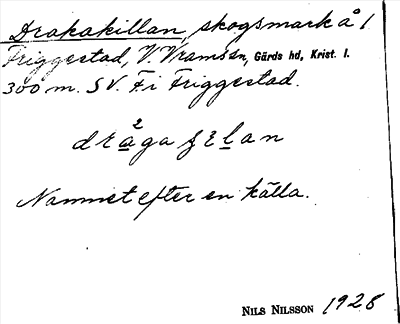 Drakakillan, skogsmark å 1
Friggestad, V. Vrams sn, Gärds hd, Krist. l.
300 m. S V. F. i Friggestad.
2
dragaʃelan
Namnet efter en källa.
NILS NILSSON 1928